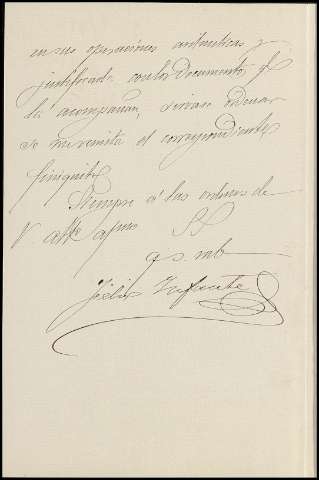 en sus operaciones aritmeticas y
justificada con los documentos q̃
la acompañan, sirvase ordenar
se me remita el correspondiente
finiquito.
Siempre á las ordenes de
V. affe amo SS
q s. mb
Felix Infante